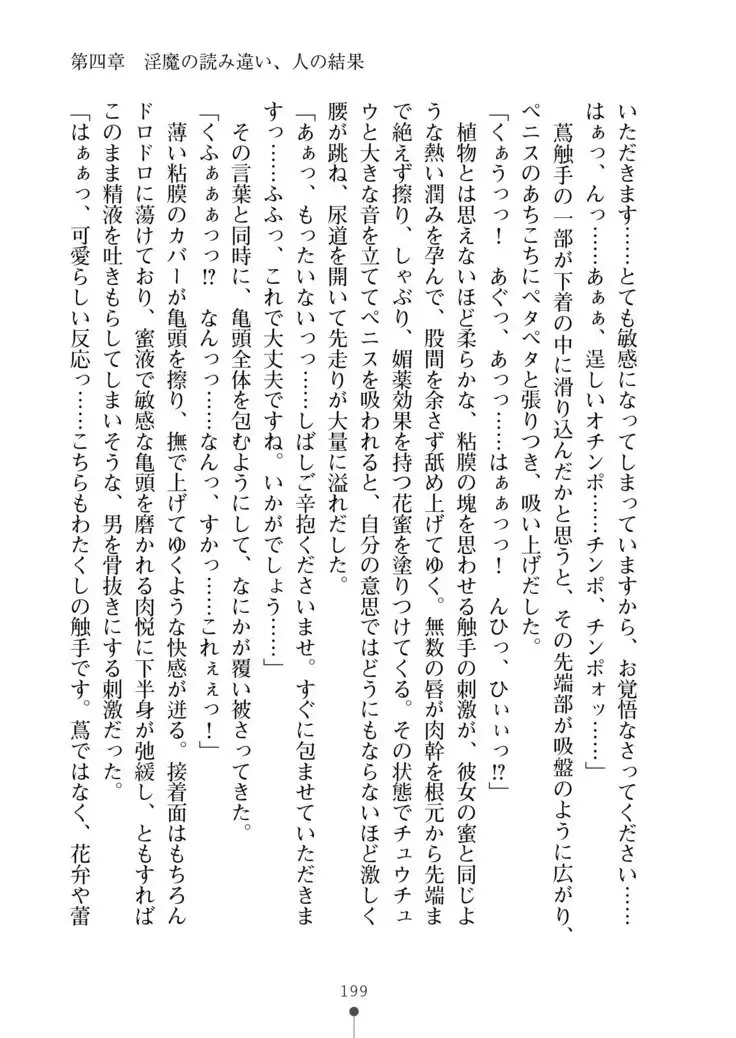 第四章　淫魔の読み違い、人の結果
いただきます……とても敏感になってしまっていますから、お覚悟なさってください……
はぁっ、んっ……あぁぁ、逞しいオチンポ……チンポ、チンポォッ……」
　蔦触手の一部が下着の中に滑り込んだかと思うと、その先端部が吸盤のように広がり、
ペニスのあちこちにペタペタと張りつき、吸い上げだした。
「くぁうっっ！　あぐっ、あっっ……はぁぁっっ！　んひっ、ひぃぃっ!?」
　植物とは思えないほど柔らかな、粘膜の塊を思わせる触手の刺激が、彼女の蜜と同じよ
うな熱い潤みを孕んで、股間を余さず舐め上げてゆく。無数の唇が肉幹を根元から先端ま
で絶えず擦り、しゃぶり、媚薬効果を持つ花蜜を塗りつけてくる。その状態でチュウチュ
ウと大きな音を立ててペニスを吸われると、自分の意思ではどうにもならないほど激しく
腰が跳ね、尿道を開いて先走りが大量に溢れだした。
「あぁっ、もったいないっっ……しばしご辛抱くださいませ。すぐに包ませていただきま
すっ……ふふっ、これで大丈夫ですね。いかがでしょう……」
　その言葉と同時に、亀頭全体を包むようにして、なにかが覆い被さってきた。
「くふぁぁぁっっ!?　なんっっ……なんっ、すかっ……これぇぇっ！」
　薄い粘膜のカバーが亀頭を擦り、撫で上げてゆくような快感が迸る。接着面はもちろん
ドロドロに蕩けており、蜜液で敏感な亀頭を磨かれる肉悦に下半身が弛緩し、ともすれば
このまま精液を吐きもらしてしまいそうな、男を骨抜きにする刺激だった。
「はぁぁっ、可愛らしい反応っ……こちらもわたくしの触手です。蔦ではなく、花弁や蕾
199